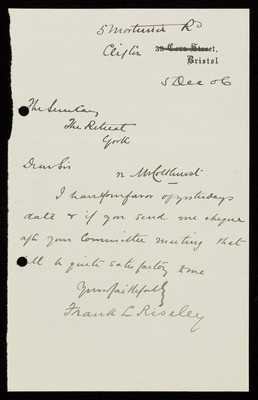 5 Mortimer Rd
Clifton
33 Cora Street,
Bristol
5 Dec 06
The Secretary
The Retreat
York
Dear Sir
re Mr Coldhurst
I have your favor of yesterdays
date & if you send me cheque
aft your Committee meeting that
ll be quite satisfactory to me
Yours faithfully
Frank L Riseley